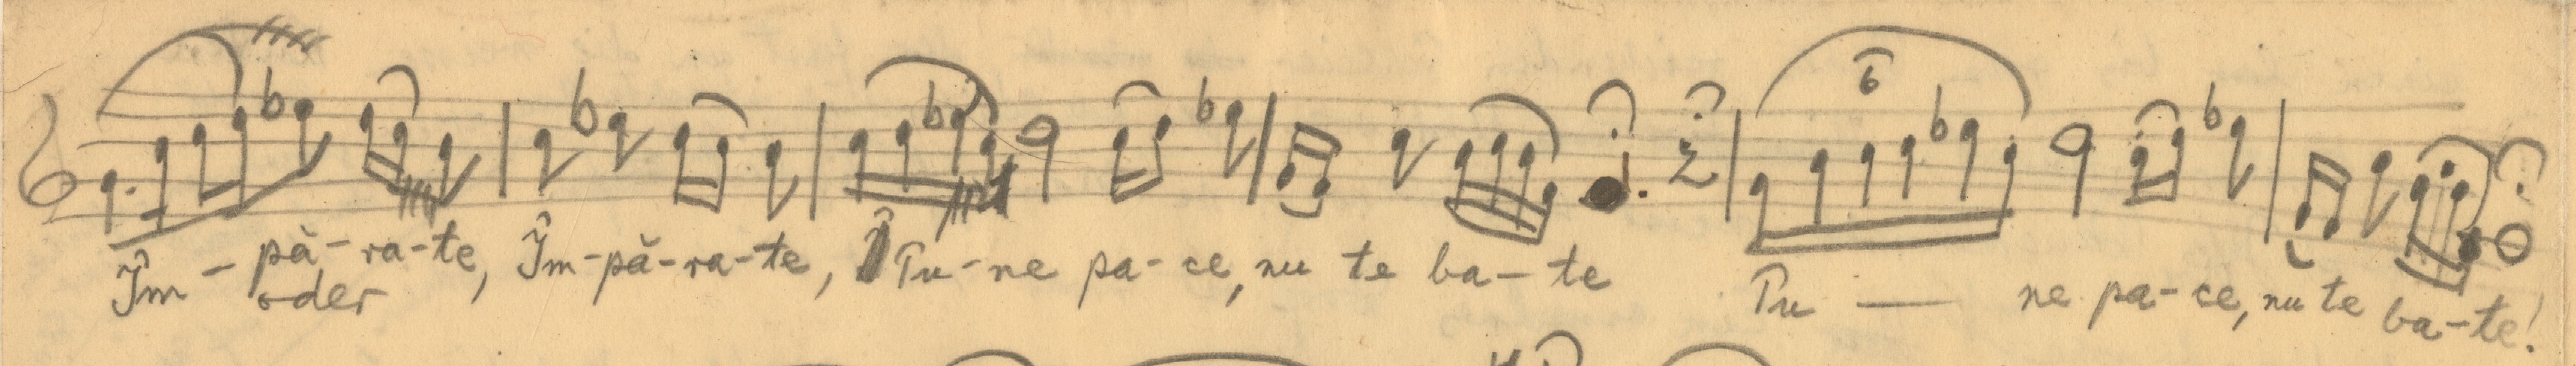 6
Îm - pă-ra-te, Îm-pă-ra-te, Pu-ne pa-ce, nu te ba-te Pu — ne pa-ce, nu te ba-te!
oder